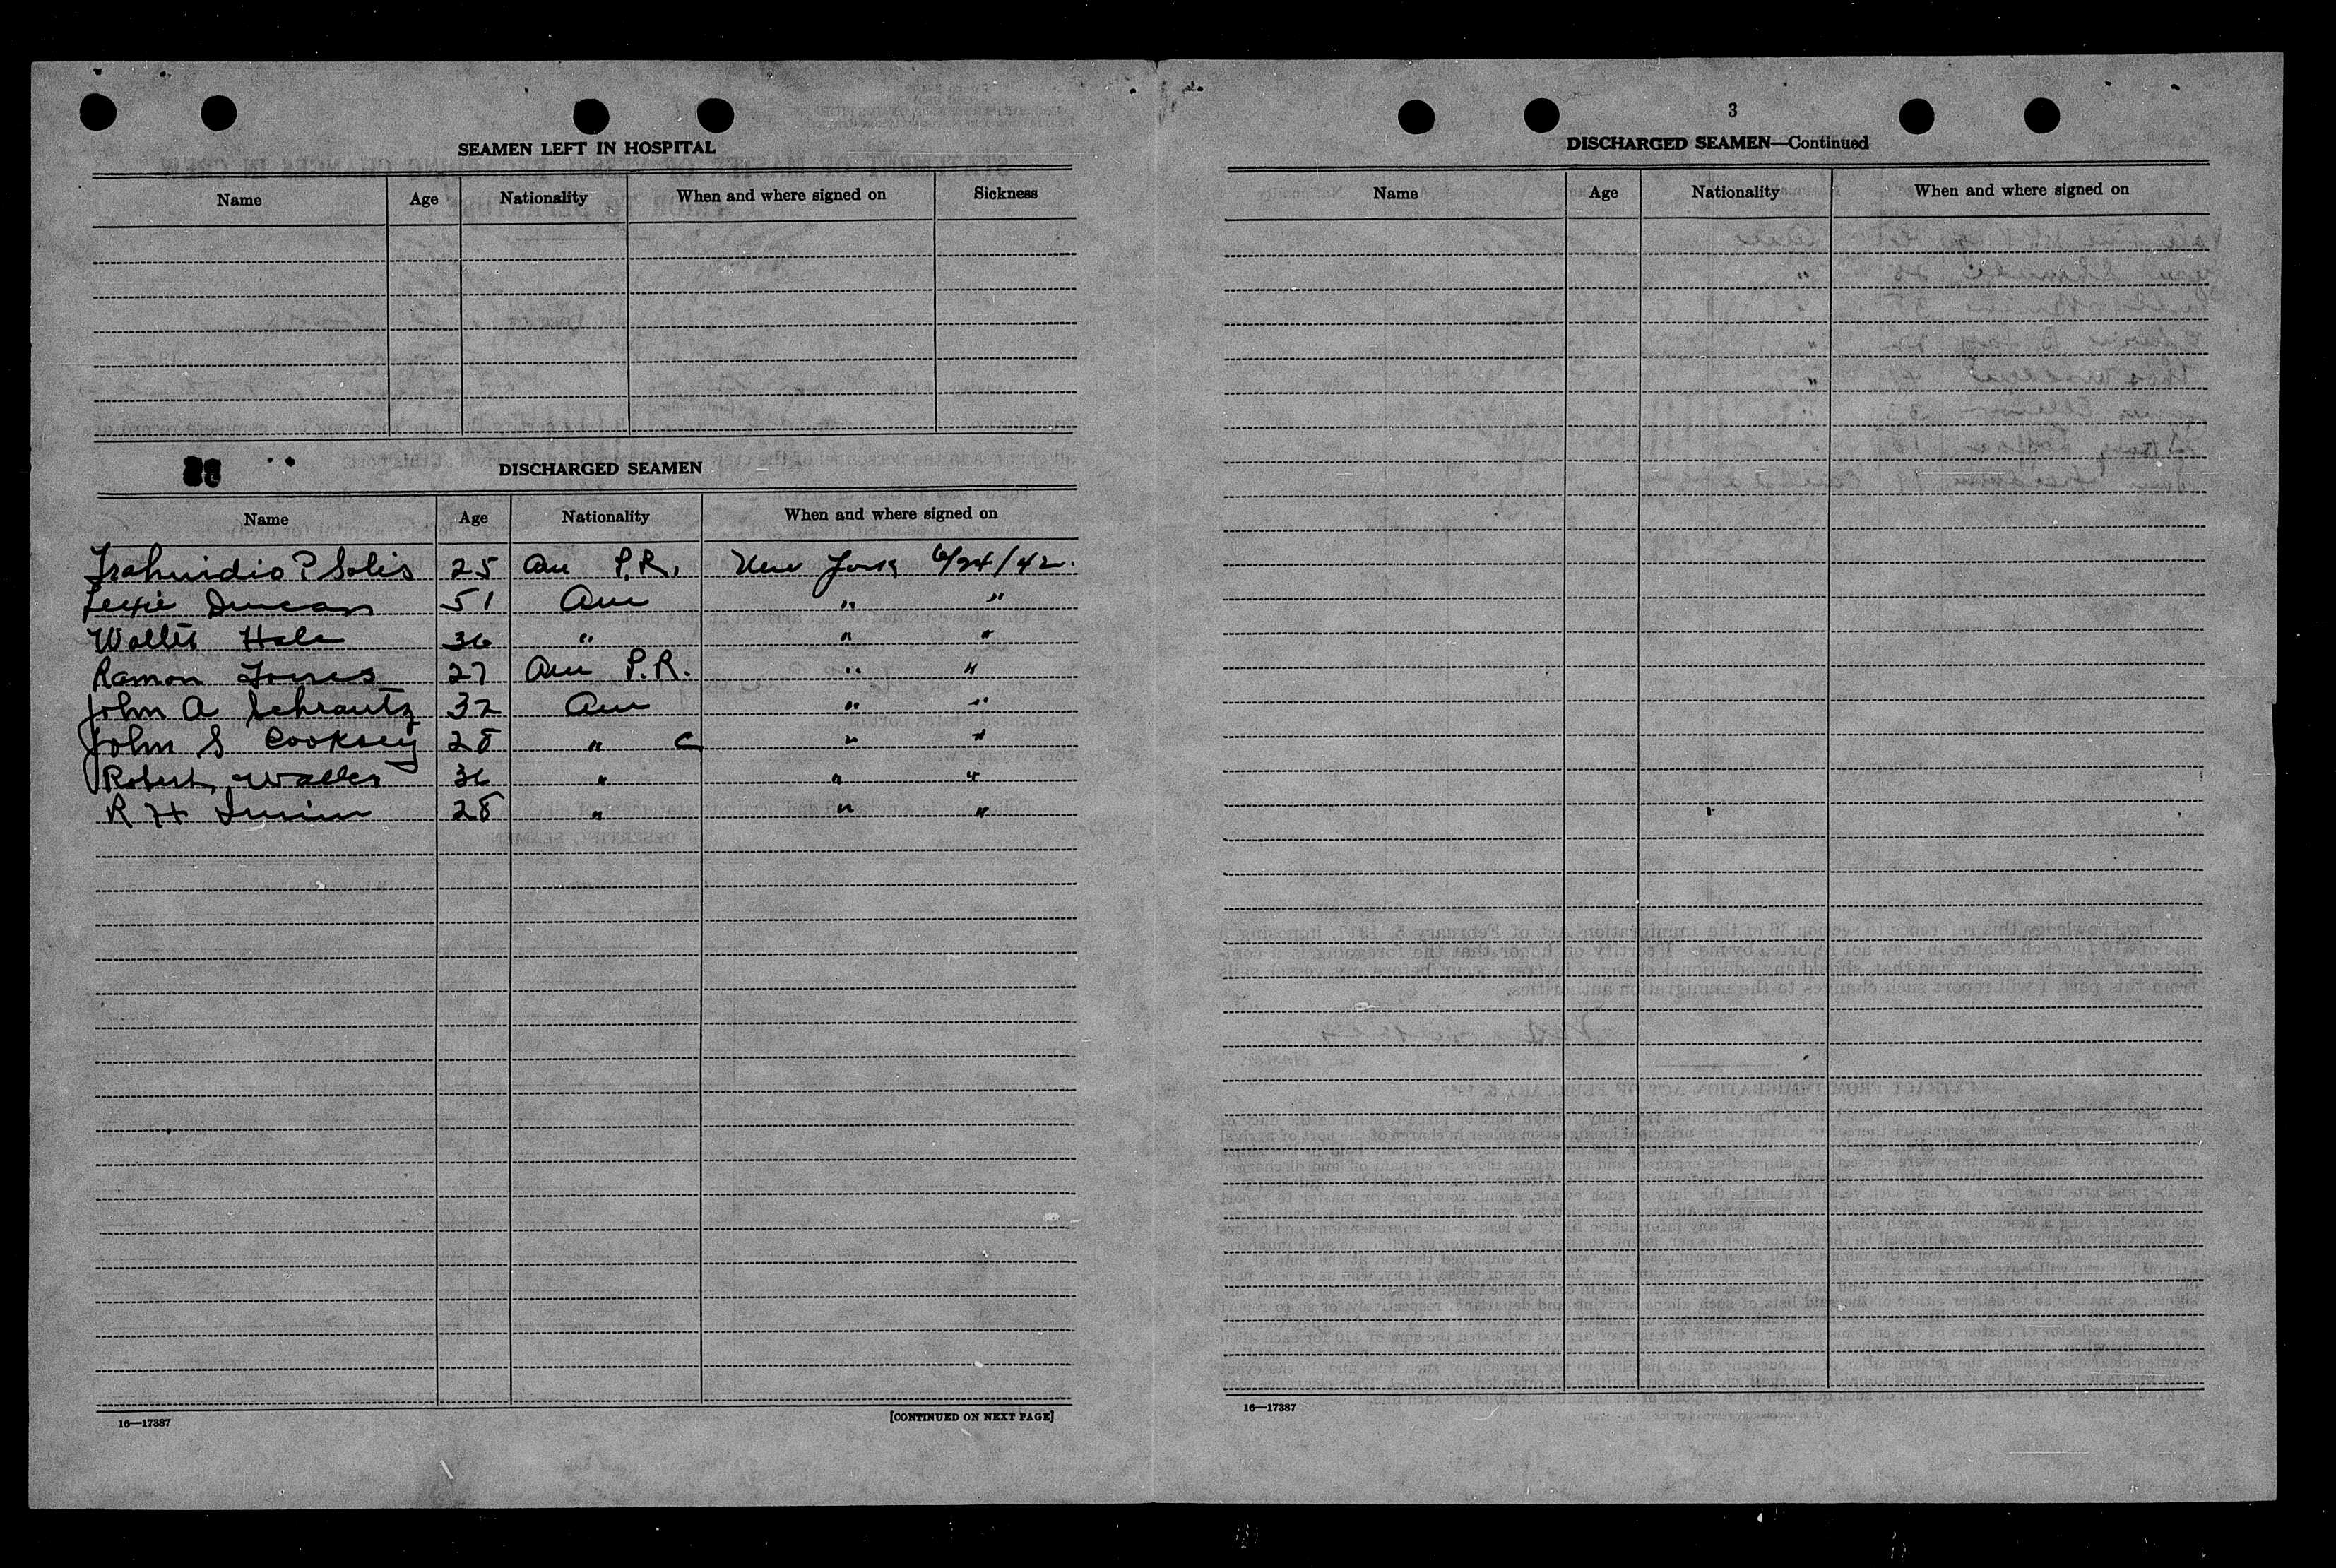 SEAMEN LEFT IN HOSPITAL
Name Age Nationality When and where signed on Sickness
DISCHARGED SEAMEN
Name Age Nationality When and where signed on
Solis 25 Am P.R. New York 6/24/42.
Duncan 51 Am " "
Walter Hale 36 " " "
Ramon Torres 27 Am P.R. " "
John A Schrautz 32 Am " "
John S Cooksey 28 " " "
Robert Waller 36 " " "
R H 28 " " "
16—17387 [CONTINUED ON NEXT PAGE]
3
DISCHARGED SEAMEN—Continued
Name Age Nationality When and where signed on
16—17387